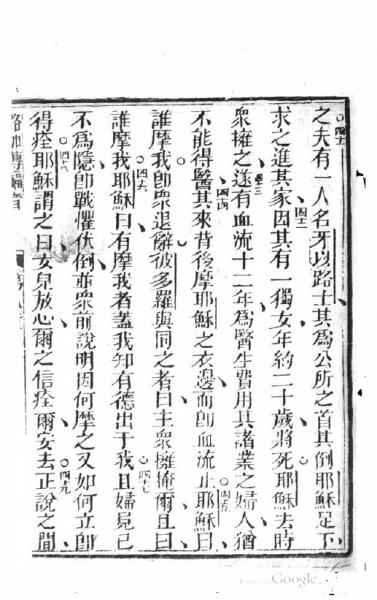 之夫有一人名牙以路士其為公所之首其倒耶穌足下
四十一
求之進其家因其有一獨女年約二十歲將死耶穌去時
四十二
衆擁之遂有血流十二年為醫生費用其諸業之婦人猶
四十三
不能得醫其來背後摩耶穌之衣邊而卽血流止耶穌曰
四十四
四十五
誰摩我卽衆退辭彼多羅與同之者曰主衆擁掩爾且曰
誰摩我耶穌曰有摩我者蓋我知有德出于我且婦見已
四十六
四十七
不為隱卽戰懼伏倒並衆前說明因何摩之又如何立卽
得痊耶穌謂之曰女兒放心爾之信痊爾安去正說之間
四十八
四十九
Google